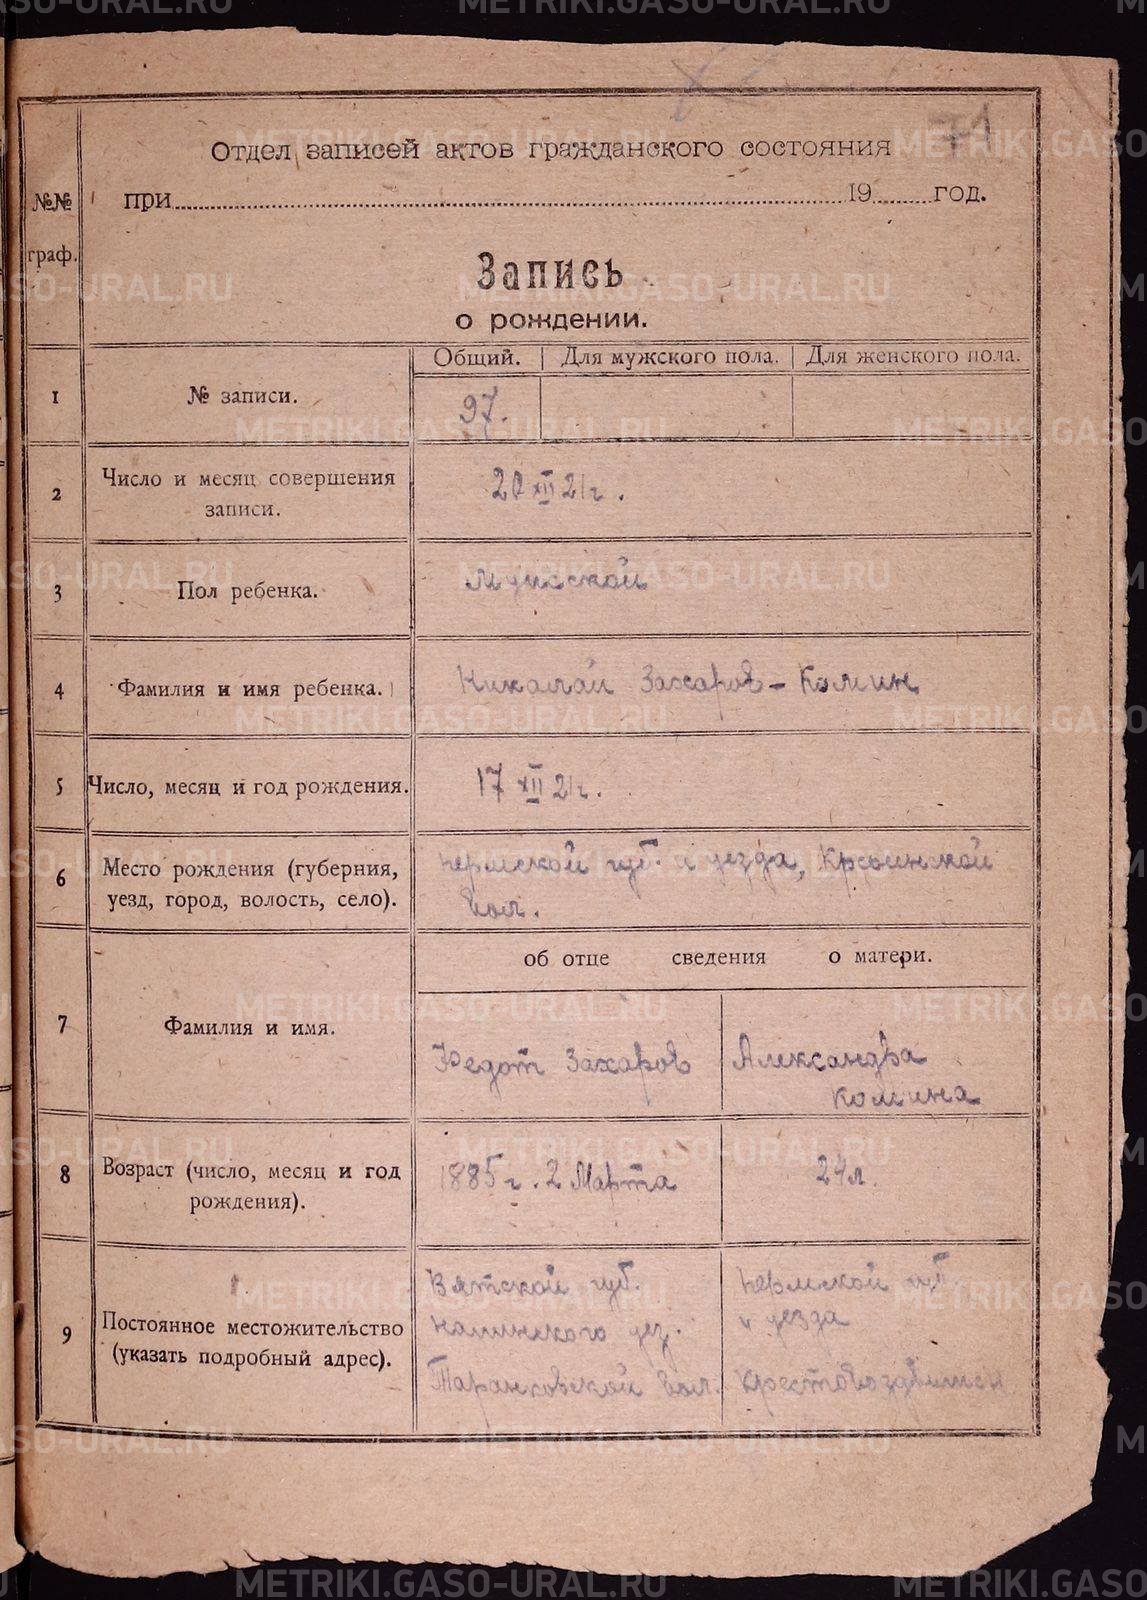 71
Отдел записей актов гражданского состояния
при 19 год.
№№
граф.
Запись
о рождении.
Общий. Для мужского пола. Для женского пола.
1 № записи. 97.
2 Число и месяц совершения
записи. 20 XII 21 г.
3 Пол ребенка. Мужской
4 Фамилия и имя ребенка. Николай Захаров – Комин
5 Число, месяц и год рождения. 17 XII 21 г.
6 Место рождения (губерния,
уезд, город, волость, село). Пермской губ. и уезда,
вол.
об отце сведения о матери.
7 Фамилия и имя. Федот Захаров Александра
Комина
8 Возраст (число, месяц и год
рождения). 1885 г. 2 Марта 24 л.
9 Постоянное местожительство
(указать подробный адрес).
Вятской губ. Пермской губ
уез. и уезда
вол. Крестовоздвижен
METRIKI.GASO-URAL.RU